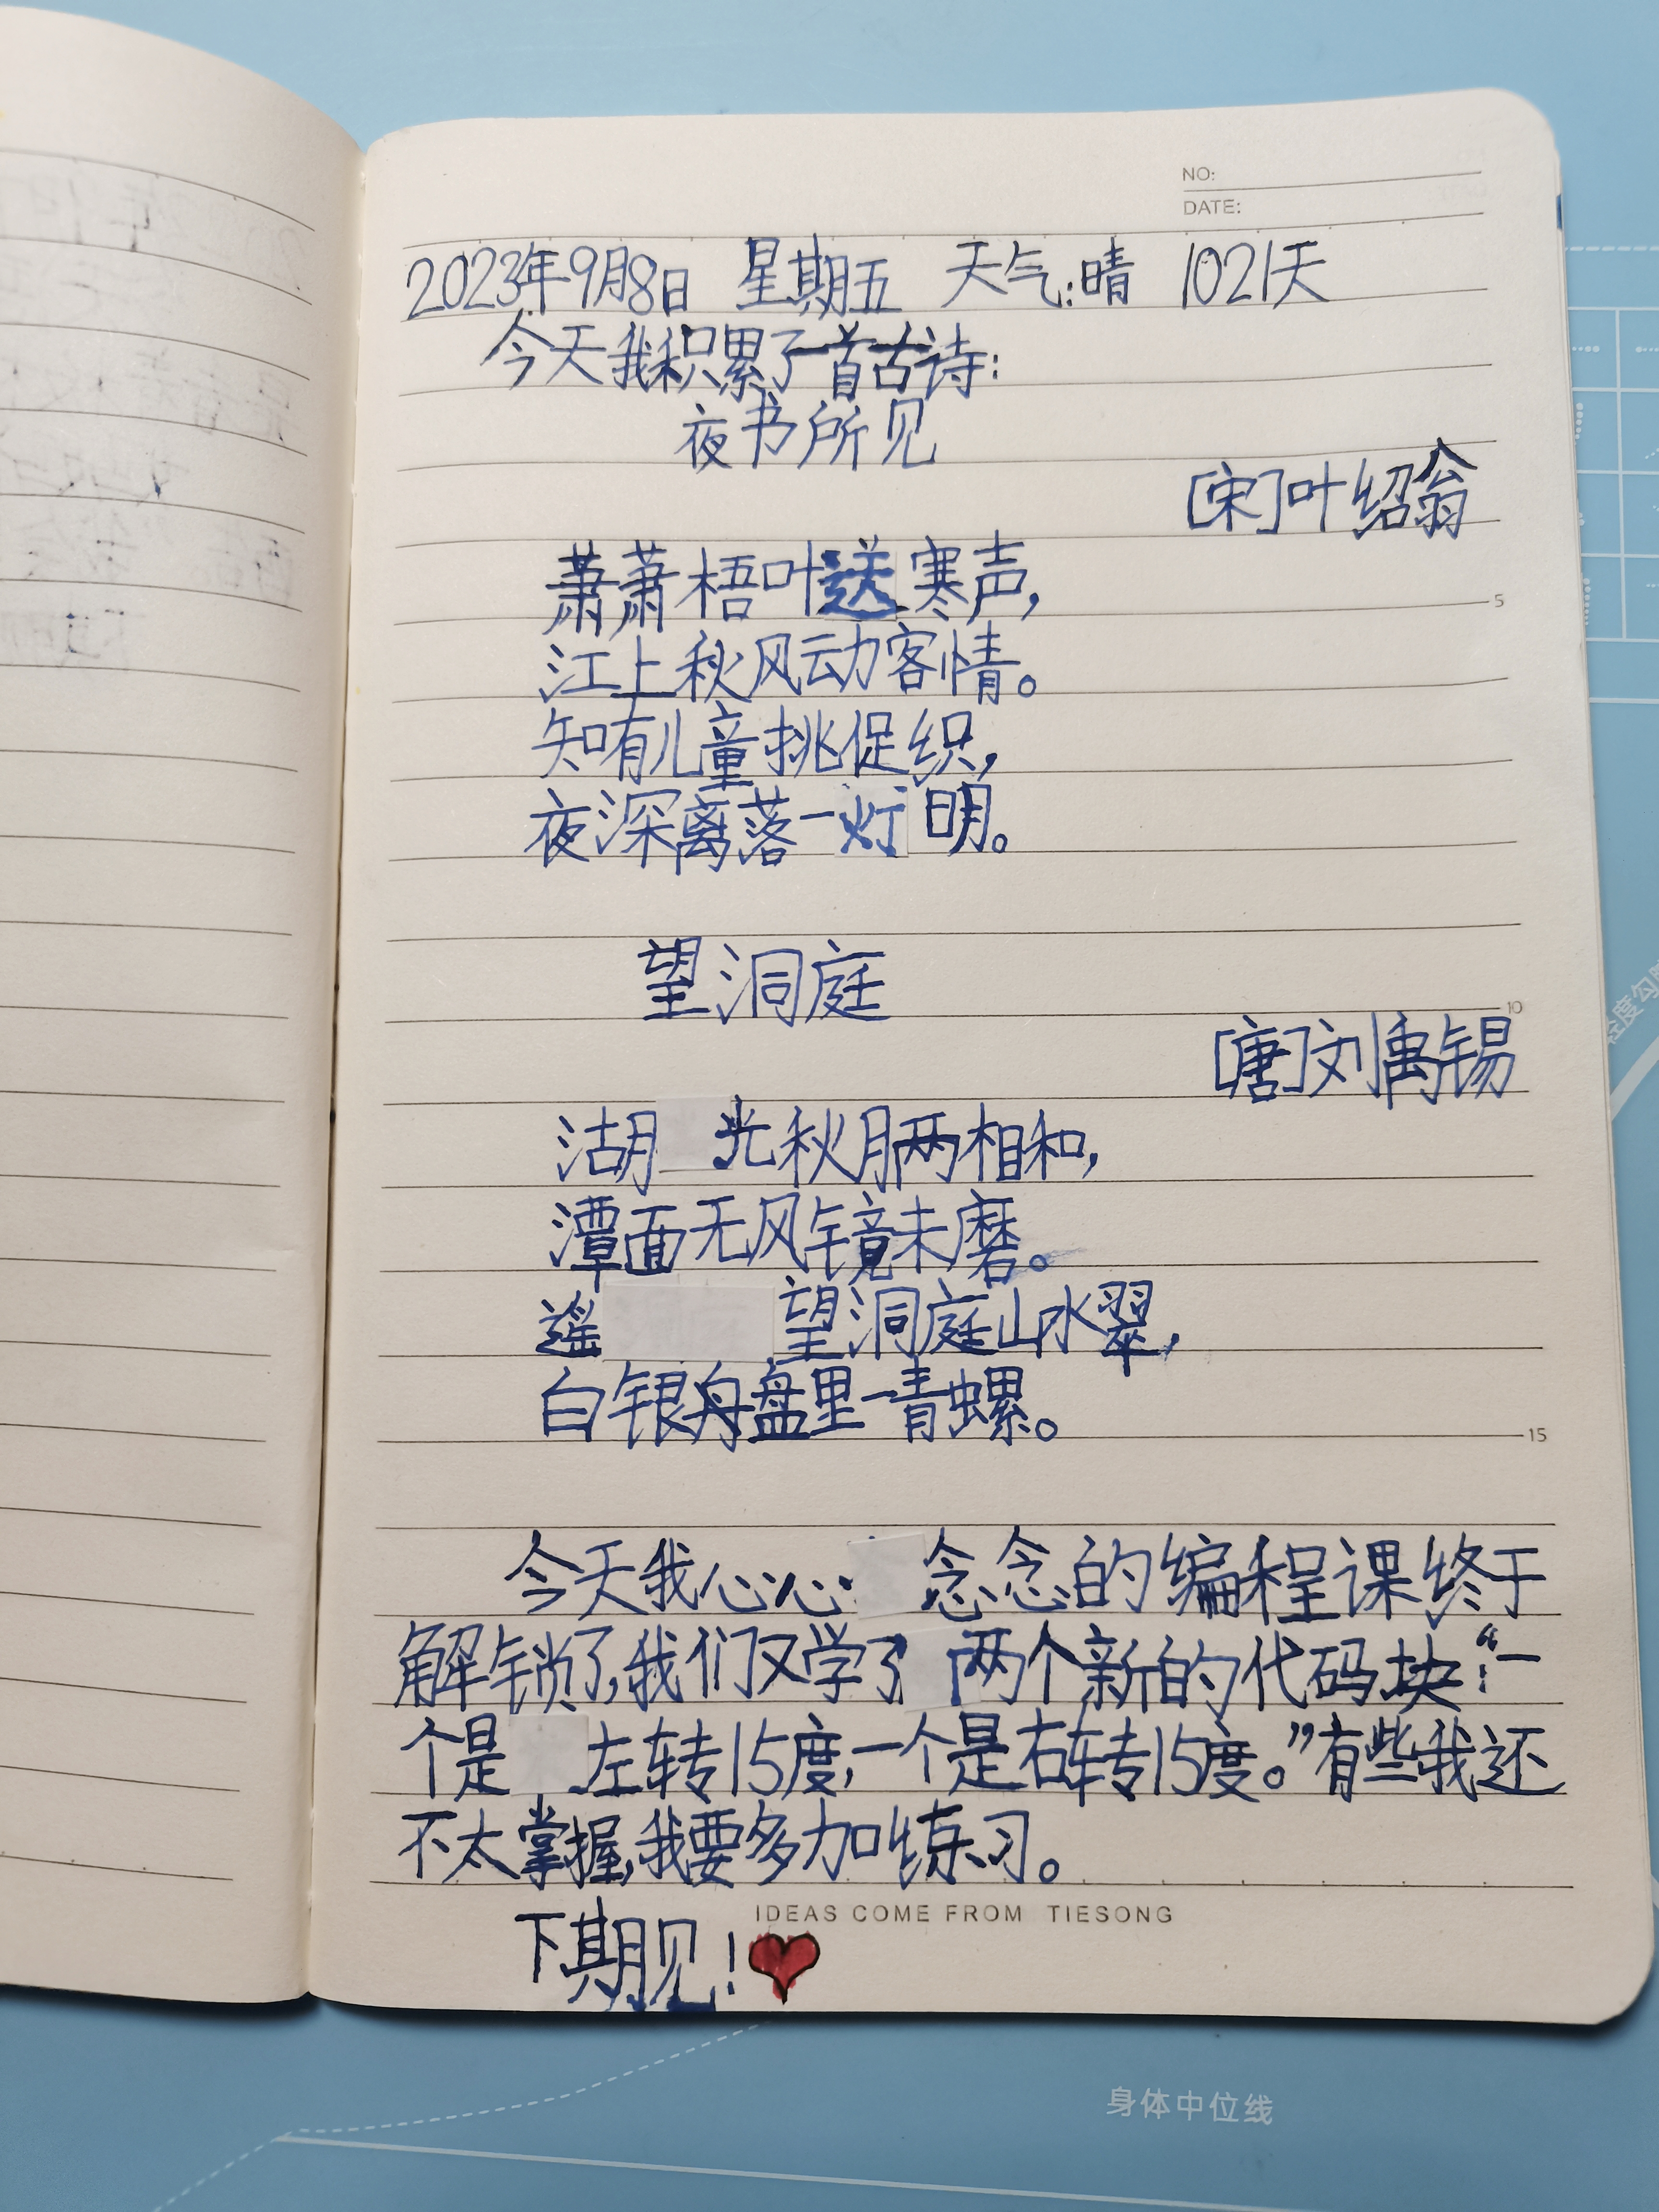 NO:
DATE:
2023年9月8日 星期五 天气:晴 1021天
今天我积累了一首古诗:
夜书所见
[宋]叶绍翁
萧萧梧叶送寒声,
江上秋风动客情。
知有儿童挑促织,
夜深离落一灯明。
望洞庭
[唐]刘禹锡
湖光秋月两相和,
潭面无风镜未磨。
遥望洞庭山水翠,
白银舟盘里一青螺。
今天我心心念念的编程课终于
解锁了,我们又学了两个新的代码块:“一
个是左转15度,一个是右转15度。”有些我还
不太掌握,我要多加练习。
IDEAS COME FROM TIESONG
下期见!
5
10
15
身体中位线